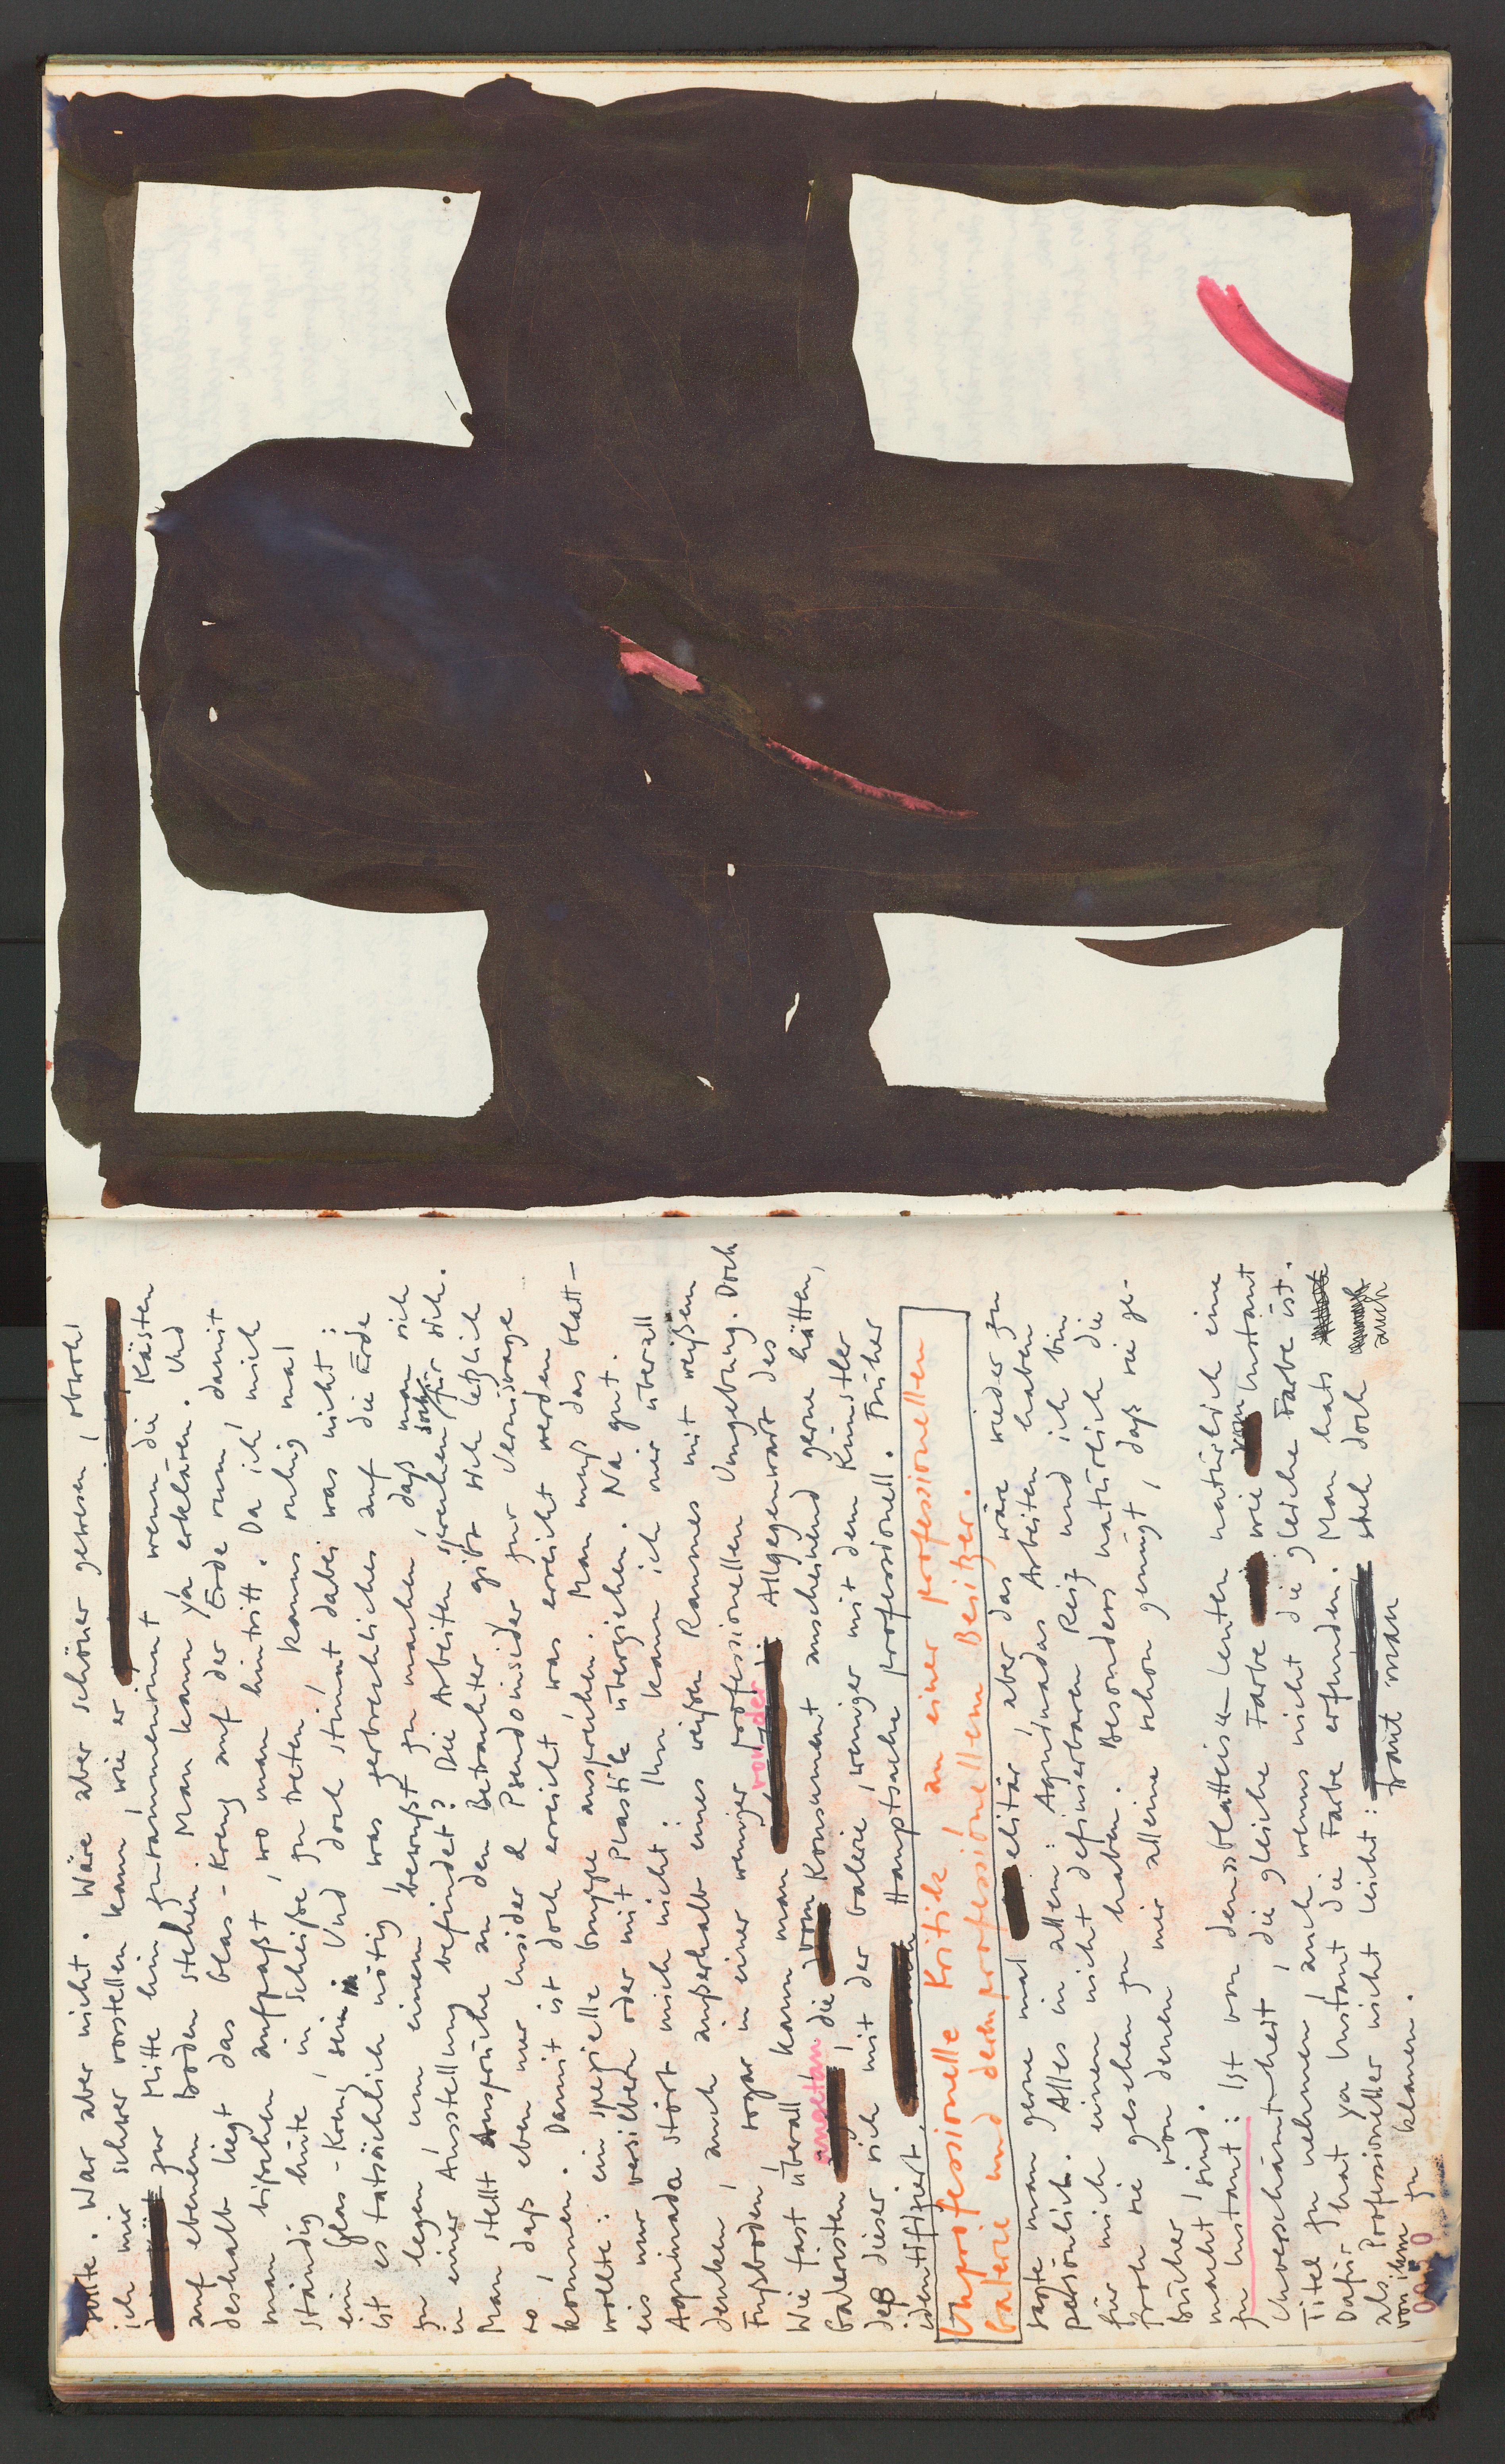 sollte. War aber nicht. Wäre aber schöner gewesen, obwohl
ich mir schwer vorstellen kann, wie er
zur Mitte hin zusammenrinnt wenn die Kästen
auf ebenem Boden stehen. Man kann ja erklären. Und
deshalb liegt das Glas-Kreuz auf der Erde rum, damit
man bißchen aufpaßt, wo man hintritt. Da ich mich
ständig hüte in Scheiße zu treten, kanns ruhig mal
ein Glas-Kreuz sein. Und doch stimmt dabei was nicht:
ist es tatsächlich nötig, was zerbrechliches auf die Erde
zu legen, um einem bewußt zu machen, daß man sich
in einer Ausstellung befindet? Die Arbeiten sprechen doch für sich.
Man stellt Ansprüche an den Betrachter gibt sich letzlich
so, daß eben nur Insider & Pseudoinsider zur Vernissage
kommen. Damit ist doch erreicht was erreicht werden
wollte: ein spezielle Gruppe ansprechen. Man muß das Blatt-
eis nur versilbern oder mit Plastik überziehen. Na gut.
Agninada stört mich nicht. Ihn kann ich mir überall
denken, auch außerhalb eines weißen Raumes mit weißem
Fußboden, sogar in einer weniger professionellen Umgebung. Doch
Wie fast überall kann man von der Allgegenwart des
Galeristen angetan, die vom Konsument anscheinend gerne hätten,
deß dieser sich mit der Galerie, weniger mit dem Künstler
identifiziert. Hauptsache professionell. Früher
Unprofessionelle Kritik an einer professionellen
Galerie und deren professionellem Besitzer.
sagte man gerne mal elitär, aber das wäre wieder zu
persönlich. Alles in allem: Agninadas Arbeiten haben
für mich einen nicht definierbaren Reiz und ich bin
froh sie gesehen zu haben. Besonders natürlich die
Bücher von denen mir alleine schon genügt, daß sie ge-
macht sind.
zu Instant: Ist von den Blatteis-Leuten natürlich eine
Unverschämtheit, die gleiche Farbe wie vom Instant
Titel zu nehmen, auch wenns nicht die gleiche Farbe ist.
Dafür hat ja Instant die Farbe erfunden. Man hats
als Professioneller nicht leicht: steh doch auch
von ihm zu klauen. traut man